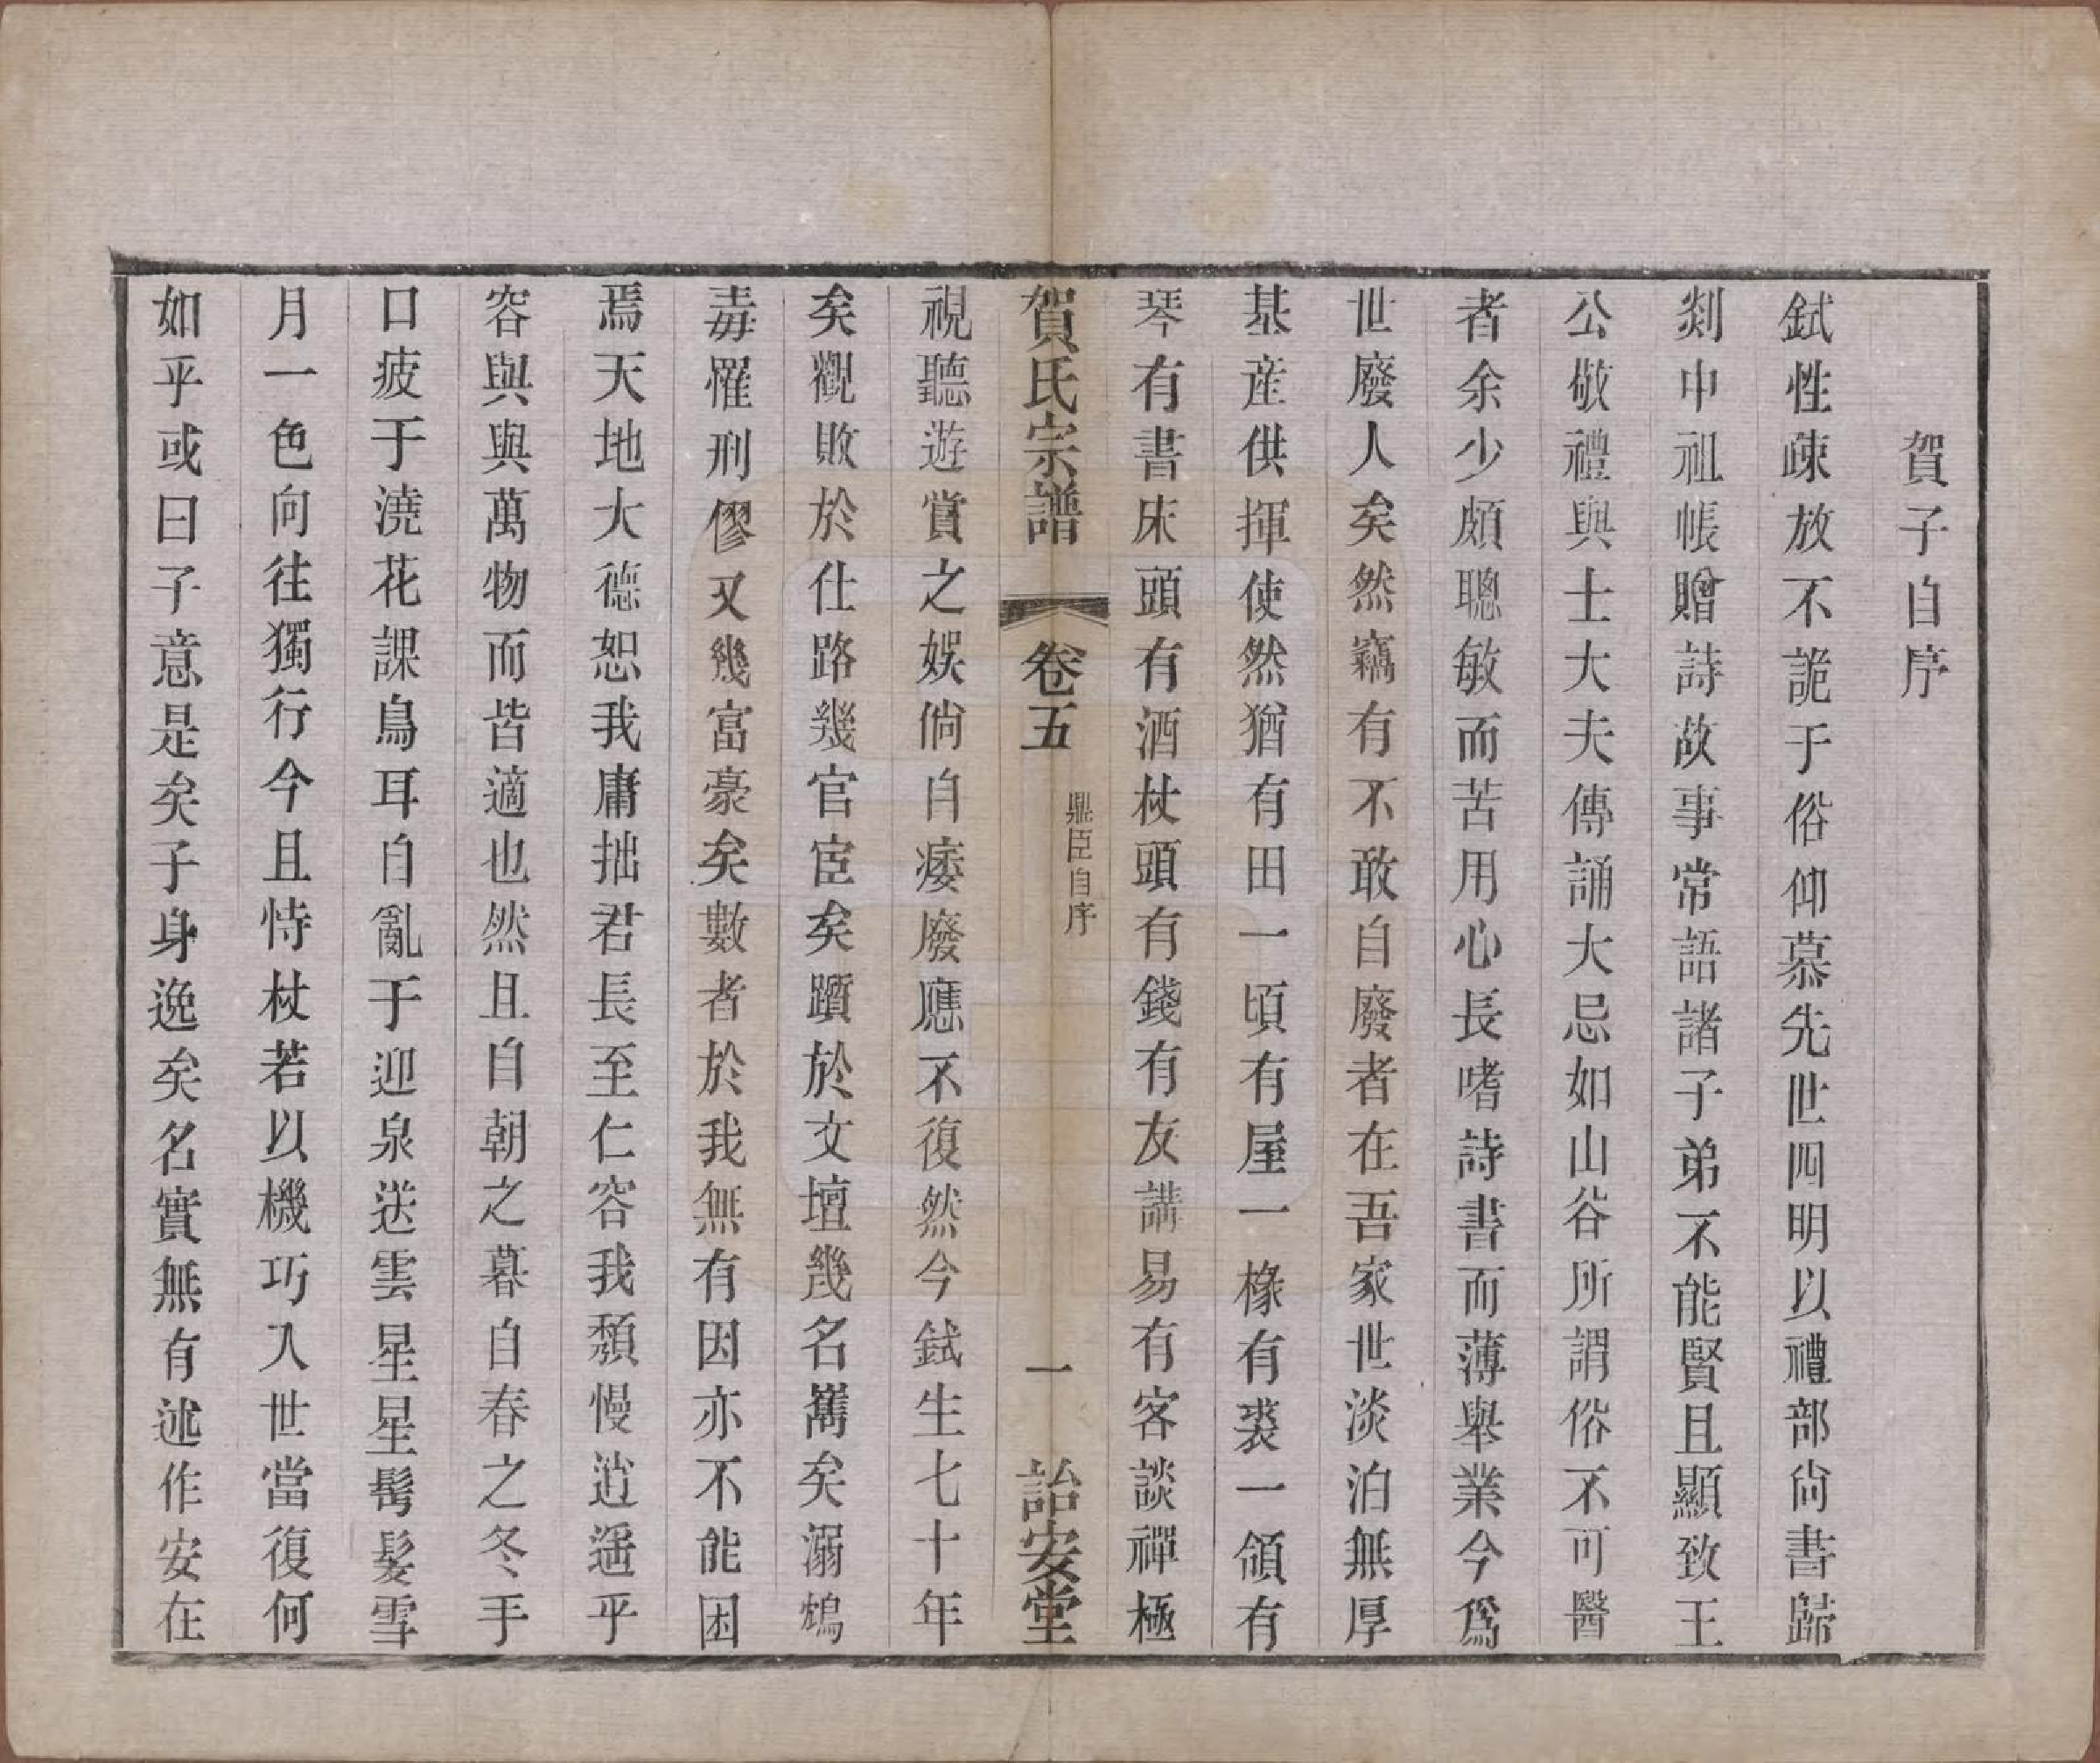 賀子自序
鉽性疎放不詭于俗仰慕先世四明以禮部尚書歸
剡中祖帳贈詩故事常語諸子弟不能賢且顯致王
公敬禮與士大夫傳誦大忌如山谷所謂俗不可醫
者余少頗聰敏而苦用心長嗜詩書而薄舉業今爲
世廢人矣然竊有不敢自廢者在吾家世淡泊無厚
基產供揮使然猶有田一頃有屋一椽有裘一領有
琴有書床頭有酒杖頭有錢有友講易有客談禪極
賀氏宗譜 卷五 鼎臣自序 一 詒安堂
視聽遊賞之娛倘自痿廢應不復然今鉽生七十年
矣觀敗於仕路幾官宦矣躓於文壇幾名嶲矣溺鴆
毒罹刑僇又幾富豪矣數者於我無有因亦不能困
焉天地大德恕我庸拙君長至仁容我頹慢逍遥乎
容與與萬物而皆適也然且自朝之暮自春之冬手
口疲于澆花課鳥耳自亂于迎泉送雲星星髩髮雪
月一色向往獨行今且恃杖若以機巧入世當復何
如乎或曰子意是矣子身逸矣名實無有述作安在